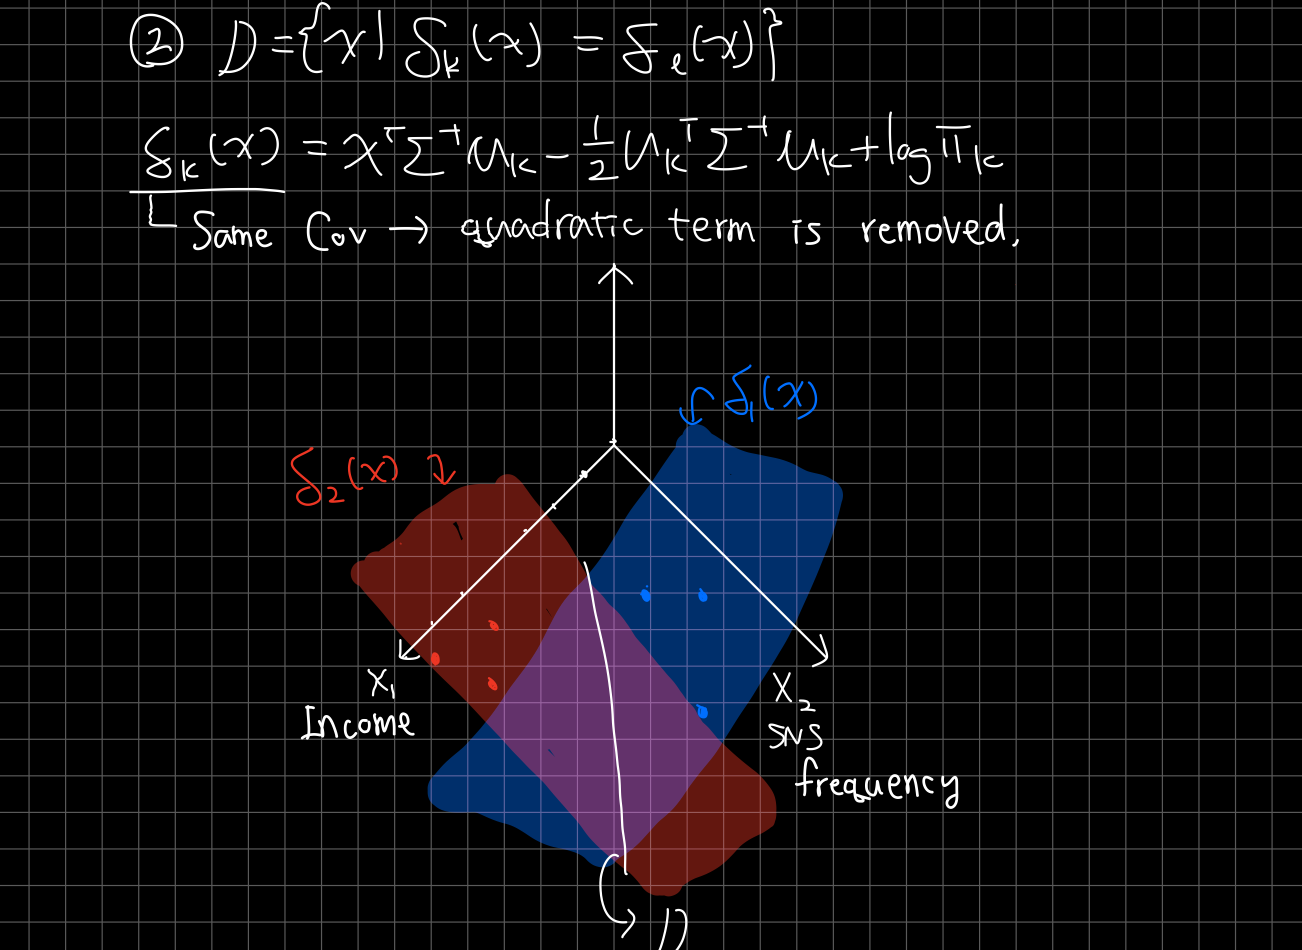 ② D={x| δk(x) = δl(x)}
δk(x) = xᵀΣ⁻¹μk − ½μkᵀΣ⁻¹μk + log πk
Same Cov → quadratic term is removed.
δ1(x)
δ2(x)
x1
Income
x2
SNS
frequency
D